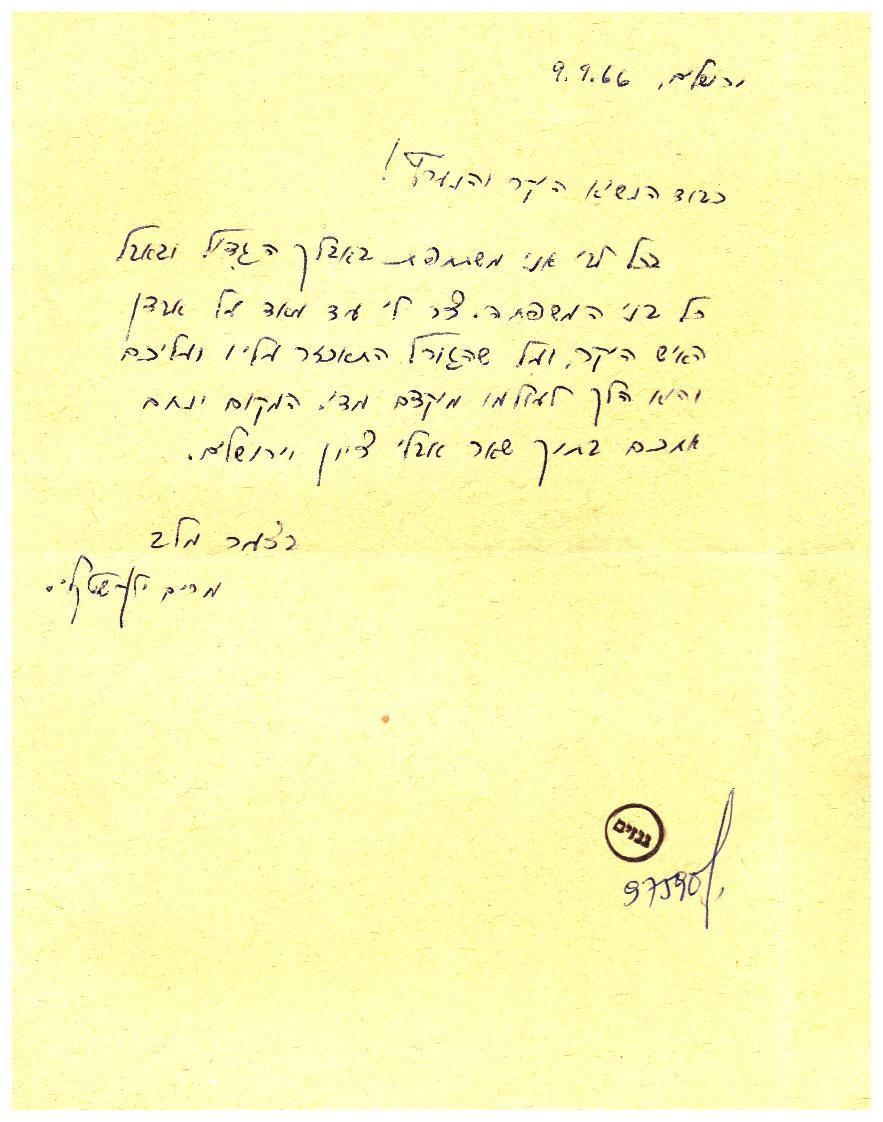 ירושלים, 9.9.66
כבוד הנשיא היקר והנערץ!
בכל לבי אני משתתפת באבלך הגדול ובאבל
כל בני המשפחה. צר לי עד מאד על אבדן
האיש היקר, ועל שהגורל התאכזר עליו ועליכם
והוא הלך לעולמו מוקדם מדי. המקום ינחם
אתכם בתוך שאר אבלי ציון וירושלים.
בצער מלב
מרים ילן-שטקליס
גנזים
97590/